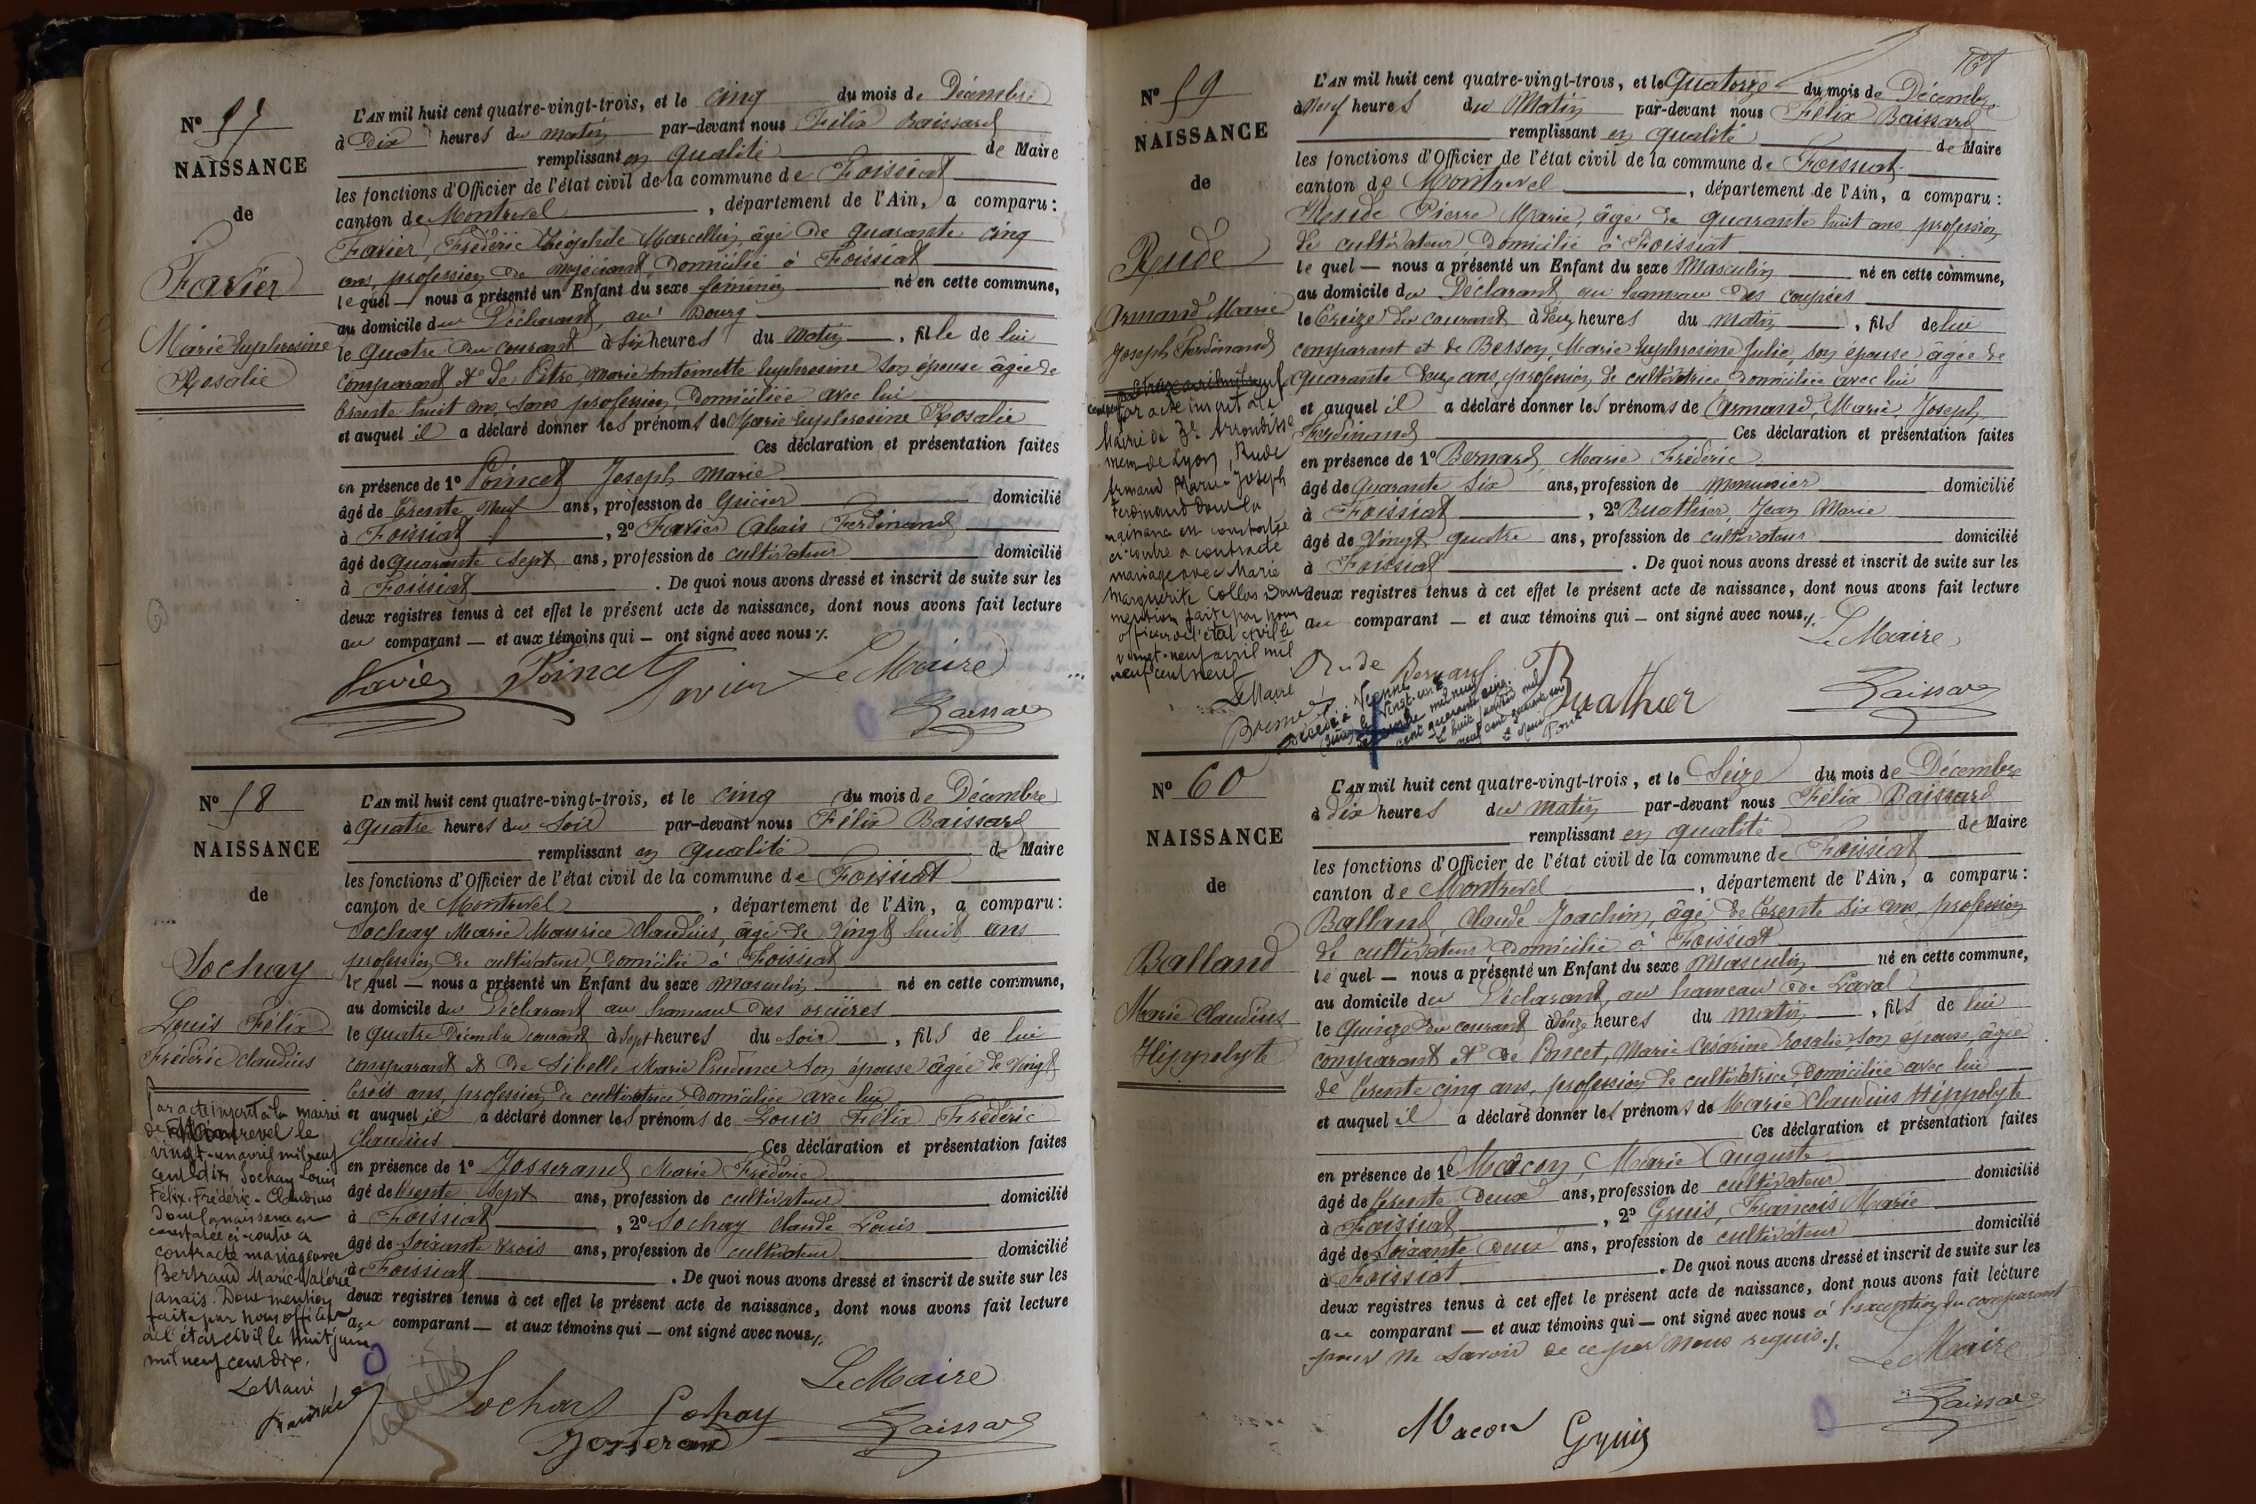 N° 57
NAISSANCE
de
Favier
Marie Euphrosine
Rosalie
L'AN mil huit cent quatre-vingt-trois, et le cinq du mois de Décembre
à Dix heures du matin par-devant nous Félix Baissard
remplissant en qualité de Maire
les fonctions d'Officier de l'état civil de la commune de Foissiat
canton de Montrevel, département de l'Ain, a comparu :
Favier, Frédéric Théophile Marcellin, âgé de quarante cinq
ans, profession de négociant, domicilié à Foissiat
le quel — nous a présenté un Enfant du sexe féminin né en cette commune,
au domicile du Déclarant, au Bourg
le quatre du courant à six heures du matin, fille de lui
comparant et de Pitre, Marie Antoinette Euphrosine son épouse âgée de
trente huit ans, sans profession, domiciliée avec lui
et auquel il a déclaré donner les prénoms de Marie Euphrosine Rosalie
Ces déclaration et présentation faites
en présence de 1° Poincet Joseph Marie
âgé de trente neuf ans, profession de épicier domicilié
à Foissiat, 2° Favier Alexis Ferdinand
âgé de quarante sept ans, profession de cultivateur domicilié
à Foissiat. De quoi nous avons dressé et inscrit de suite sur les
deux registres tenus à cet effet le présent acte de naissance, dont nous avons fait lecture
au comparant — et aux témoins qui — ont signé avec nous ./.
Favier Poincet Favier Le Maire
Baissard
N° 58
NAISSANCE
de
Sochay
Louis Félix
Frédéric Claudius
Par acte inscrit à la mairie
de Montrevel le
vingt-un avril mil neuf
cent dix, Sochay Louis
Félix-Frédéric-Claudius
dont la naissance est
constatée ci-contre a
contracté mariage avec
Bertrand Marie-Valérie
Janaïs. Dont mention
faite par nous officier
de l'état civil le huit juin
mil neuf cent dix.
Le Maire
L'AN mil huit cent quatre-vingt-trois, et le cinq du mois de Décembre
à quatre heures du soir par-devant nous Félix Baissard
remplissant en qualité de Maire
les fonctions d'Officier de l'état civil de la commune de Foissiat
canton de Montrevel, département de l'Ain, a comparu :
Sochay Marie Maurice Claudius, âgé de vingt huit ans
profession de cultivateur, domicilié à Foissiat
le quel — nous a présenté un Enfant du sexe masculin né en cette commune,
au domicile du Déclarant au hameau des orcières
le quatre Décembre courant à sept heures du soir, fils de lui
comparant et de Sibelle Marie Prudence son épouse âgée de vingt
trois ans, profession de cultivatrice domiciliée avec lui
et auquel il a déclaré donner les prénoms de Louis Félix Frédéric
Claudius Ces déclaration et présentation faites
en présence de 1° Josserand Marie Frédéric
âgé de trente sept ans, profession de cultivateur domicilié
à Foissiat, 2° Sochay Claude Louis
âgé de soixante trois ans, profession de cultivateur domicilié
à Foissiat. De quoi nous avons dressé et inscrit de suite sur les
deux registres tenus à cet effet le présent acte de naissance, dont nous avons fait lecture
au comparant — et aux témoins qui — ont signé avec nous ./.
Sochay Sochay Le Maire
Josserand Baissard
N° 59
NAISSANCE
de
Rude
Armand Marie
Joseph Ferdinand
Par acte inscrit à la
Mairie du 3e Arrondisse
ment de Lyon, Rude
Armand Marie-Joseph
Ferdinand dont la
naissance est constatée
ci-contre a contracté
mariage avec Marie
Marguerite Collas Dont
mention faite par nous
officier de l'état civil le
vingt-neuf avril mil
neuf cent neuf
Le Maire
L'AN mil huit cent quatre-vingt-trois, et le Quatorze du mois de Décembre
à Neuf heures du matin par-devant nous Félix Baissard
remplissant en qualité de Maire
les fonctions d'Officier de l'état civil de la commune de Foissiat
canton de Montrevel, département de l'Ain, a comparu :
Rude Pierre Marie, âgé de quarante huit ans, profession
de cultivateur, domicilié à Foissiat
le quel — nous a présenté un Enfant du sexe Masculin né en cette commune,
au domicile du Déclarant au hameau des coupées
le treize du courant à deux heures du matin, fils de lui
comparant et de Besson, Marie Euphrosine Julie, son épouse âgée de
quarante deux ans, profession de cultivatrice, domiciliée avec lui
et auquel il a déclaré donner les prénoms de Armand, Marie Joseph
Ferdinand Ces déclaration et présentation faites
en présence de 1° Bernard, Marie Frédéric
âgé de quarante six ans, profession de menuisier domicilié
à Foissiat, 2° Buathier Jean Marie
âgé de vingt quatre ans, profession de cultivateur domicilié
à Foissiat. De quoi nous avons dressé et inscrit de suite sur les
deux registres tenus à cet effet le présent acte de naissance, dont nous avons fait lecture
au comparant — et aux témoins qui — ont signé avec nous ./.
Le Maire
Rude Bernard Buathier Baissard
Décédé à Vienne
N° 60
NAISSANCE
de
Balland
Marie Claudius
Hippolyte
L'AN mil huit cent quatre-vingt-trois, et le Seize du mois de Décembre
à dix heures du matin par-devant nous Félix Baissard
remplissant en qualité de Maire
les fonctions d'Officier de l'état civil de la commune de Foissiat
canton de Montrevel, département de l'Ain, a comparu :
Balland, Claude Joachin, âgé de trente six ans, profession
de cultivateur, domicilié à Foissiat
le quel — nous a présenté un Enfant du sexe Masculin né en cette commune,
au domicile du Déclarant, au hameau de Laval
le Quinze du courant à onze heures du matin, fils de lui
comparant et de Poncet, Marie Césarine Rosalie, son épouse, âgée
de trente cinq ans, profession de cultivatrice, domiciliée avec lui
et auquel il a déclaré donner les prénoms de Marie Claudius Hippolyte
Ces déclaration et présentation faites
en présence de 1° Mâcon, Marie Auguste
âgé de trente deux ans, profession de cultivateur domicilié
à Foissiat, 2° Gruis, François Marie
âgé de soixante deux ans, profession de cultivateur domicilié
à Foissiat. De quoi nous avons dressé et inscrit de suite sur les
deux registres tenus à cet effet le présent acte de naissance, dont nous avons fait lecture
au comparant — et aux témoins qui — ont signé avec nous à l'exception du comparant
pour ne savoir de ce par nous requis ./.
Le Maire
Macon Gruis Baissard